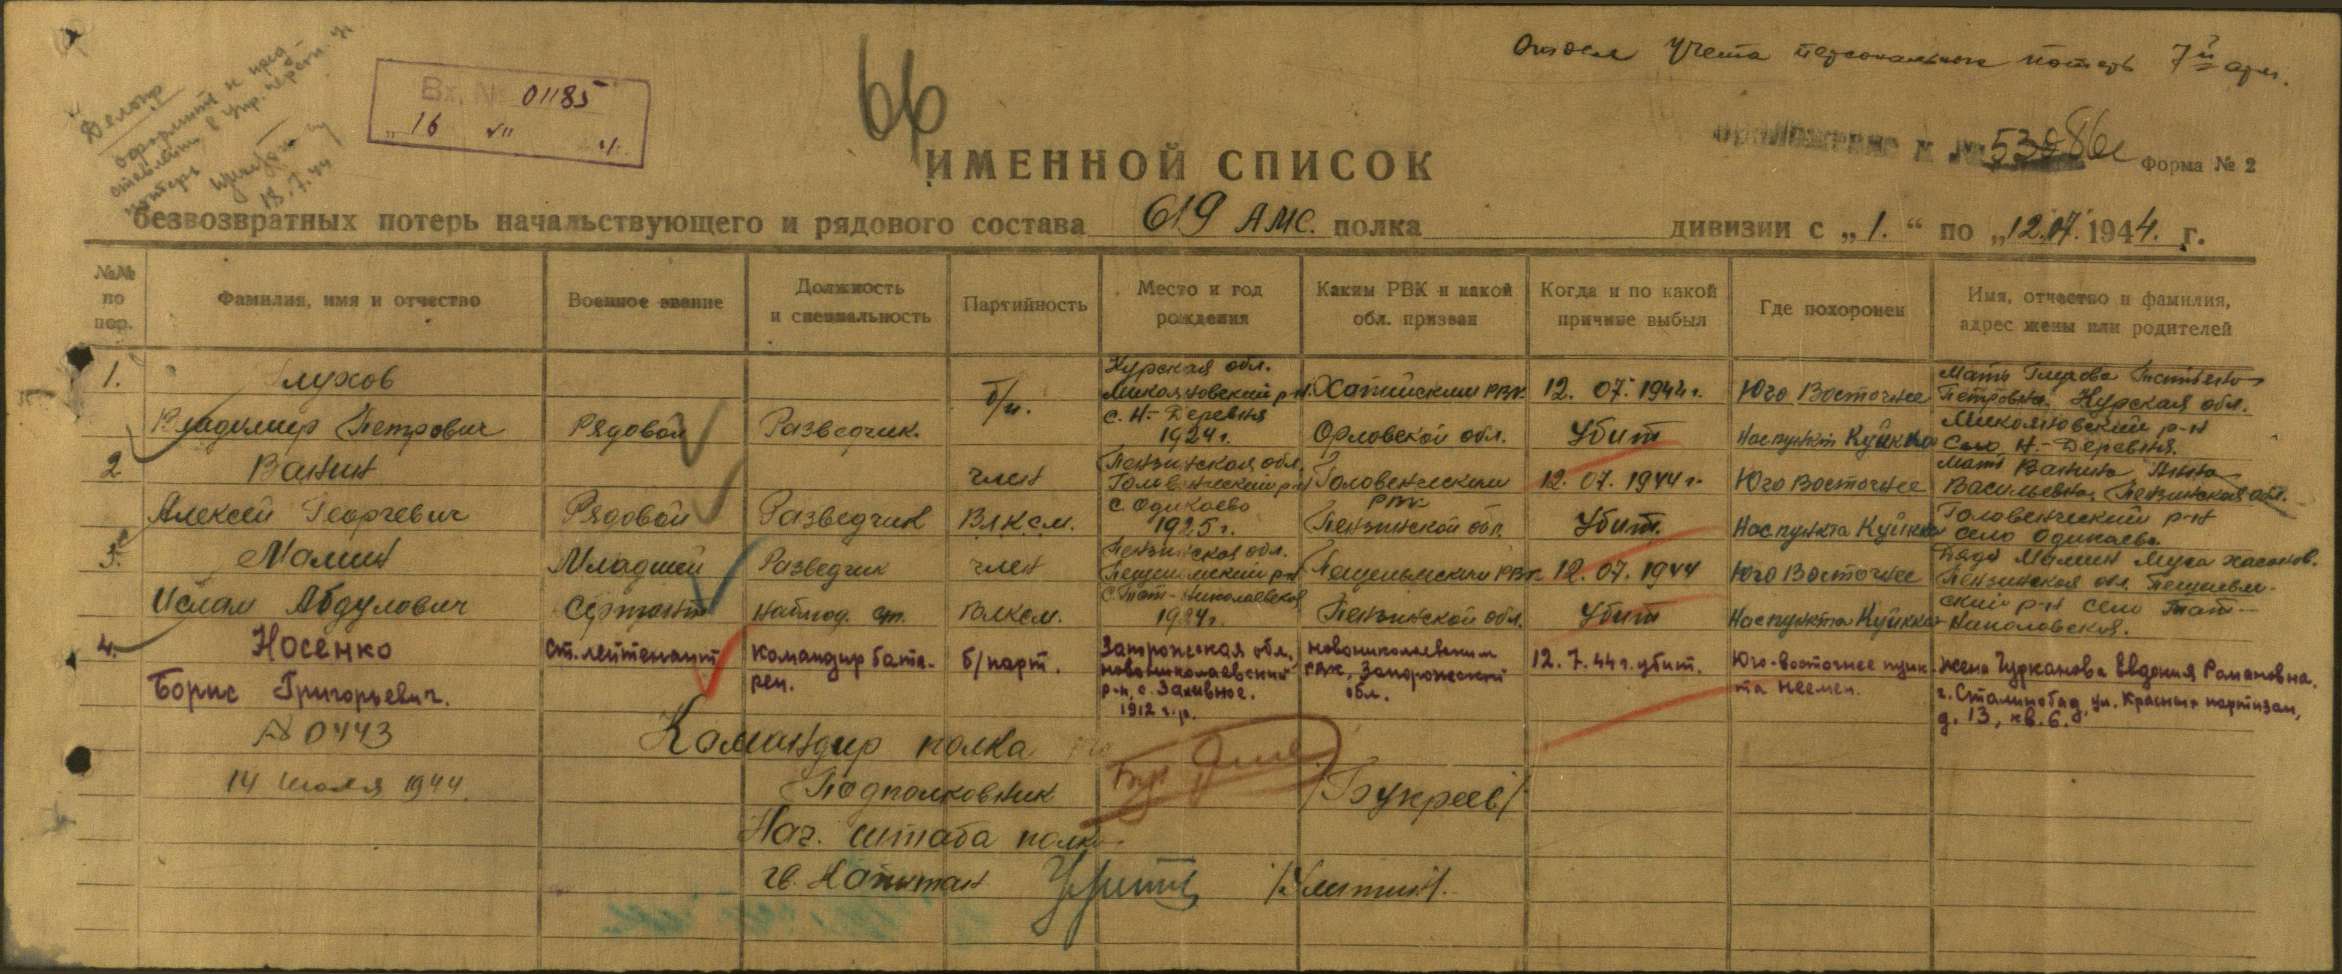 Отдел учета персональных потерь 7й арм.
Делопр.
18.7.44
Вх. № 01185
"16 V"
66
приложение к № 53986с
Форма № 2
ИМЕННОЙ СПИСОК
безвозвратных потерь начальствующего и рядового состава 619 АМС. полка дивизии с „1." по „12.07.1944. г.
№№ по пор.
Фамилия, имя и отчество
Военное звание
Должность и специальность
Партийность
Место и год рождения
Каким РВК и какой обл. призван
Когда и по какой причине выбыл
Где похоронен
Имя, отчество и фамилия, адрес жены или родителей
1.
Глухов
Владимир Петрович
Рядовой
Разведчик.
б/п.
Курская обл.
с. Н.-Деревня
1924г.
РВК
Орловской обл.
12. 07. 1944г.
Убит
Юго Восточнее
нас пункта Куйкка
Мать
Петровна. Курская обл.
р-н
Село Н.-Деревня.
2
Ванин
Алексей Георгевич
Рядовой
Разведчик
член
ВЛКСМ.
Пензинская обл.
р-н
с. Одикаево
1925г.
РВК
Пензинской обл.
12. 07. 1944г.
Убит.
Юго Восточнее
нас пункта Куйкка
Мать Ванина Анна
Васильевна, Пензинская обл.
р-н
село Одикаево.
3.
Мамин
Ислам Абдулович
Младший
Сержант
Разведчик
наблюд. ст.
член
ВЛКСМ.
Пензинская обл.
р-н
1924г.
РВК
Пензинской обл.
12. 07. 1944
Убит
Юго Восточнее
нас пункта Куйкка
Дядя Мамин Муса
Пензинская обл.
р-н село Тат-
4.
Носенко
Борис Григорьевич.
Ст. лейтенант
Командир бата-
реи.
б/парт.
Запорожская обл,
новониколаевский
р-н, с. Заливное.
1912 г.р.
новониколаевским
РВК, Запорожской
обл.
12.7.44г. убит.
Юго-восточнее пунк-
та Неемен.
жена Чурканова Евдокия Романовна.
г. Сталинобад, ул. Красных партизан,
д. 13, кв. 6.
№ 0443
14 июля 1944.
Командир полка
Подполковник
/Букреев/
Нач. штаба полка
гв. Капитан
/Улитин/.